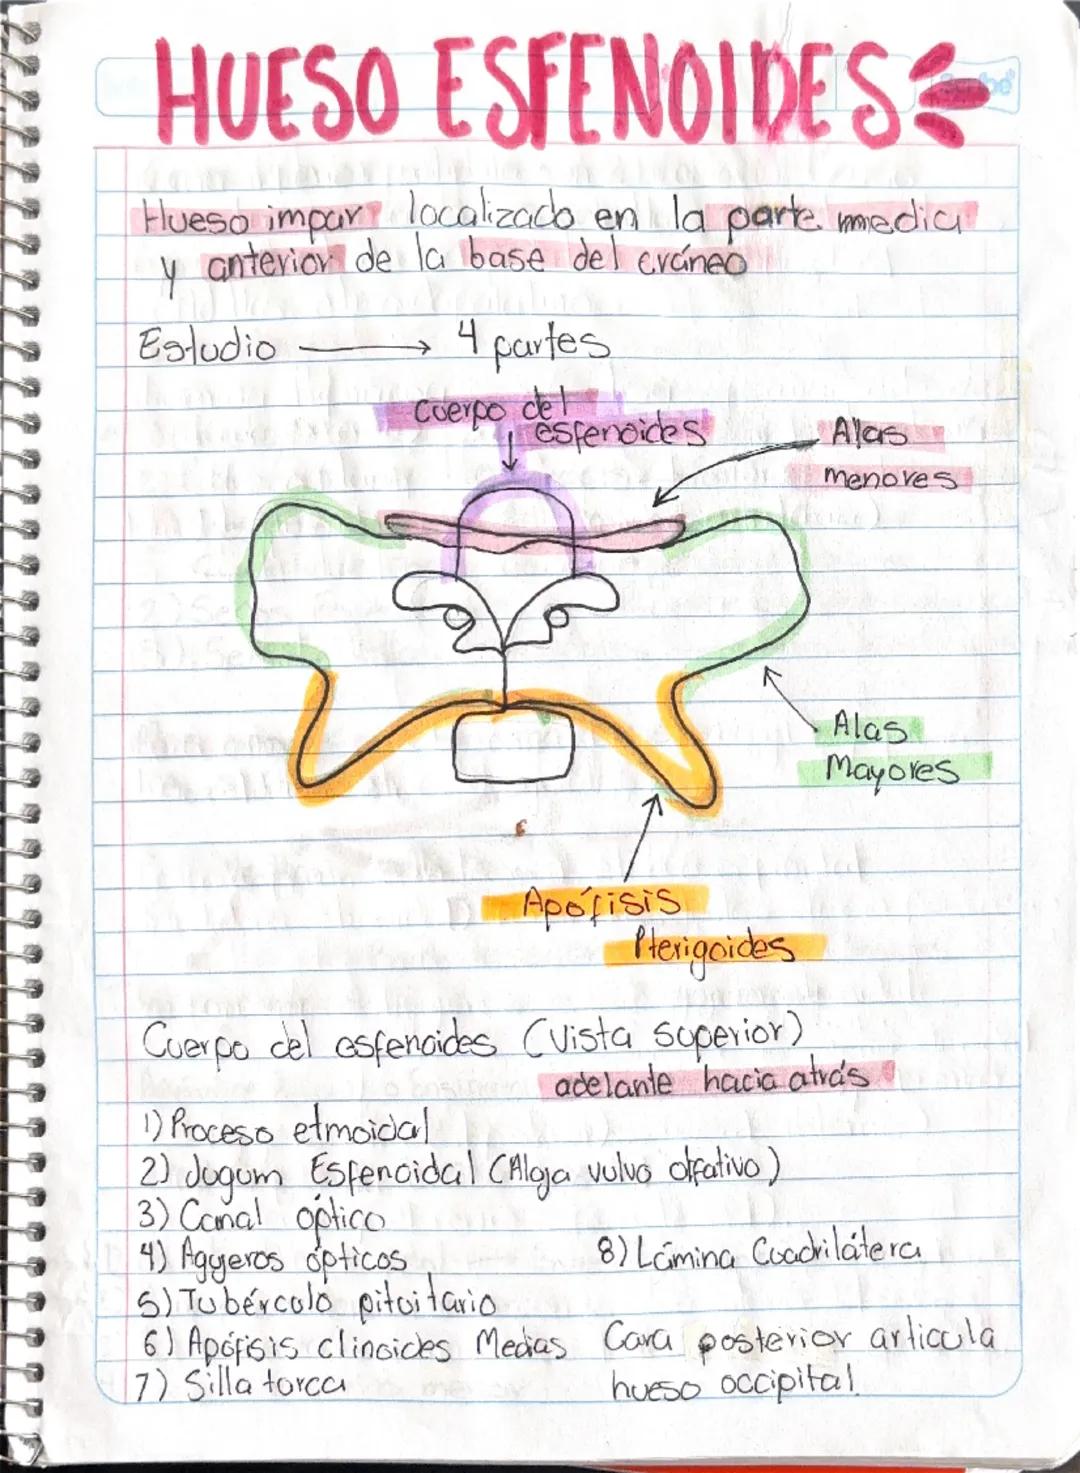 HUESO ESFENOIDES
Hueso impar localizado en la parte media
y anterior de la base del cráneo
Estudio → 4 partes
Cuerpo del
esfenoides
Alas
menores
Alas
Mayores
Apófisis
Pterigoides
Cuerpo del esfenoides (Vista superior)
adelante hacia atrás
1) Proceso etmoidal
2) Jugum Esfenoidal (Aloja vulvo olfativo)
3) Canal óptico
4) Agujeros ópticos
5) Tubérculo pituitario
6) Apófisis clinoides Medias
7) Silla torca
8) Lámina Cuadrilátera
Cara posterior articula
hueso occipital.